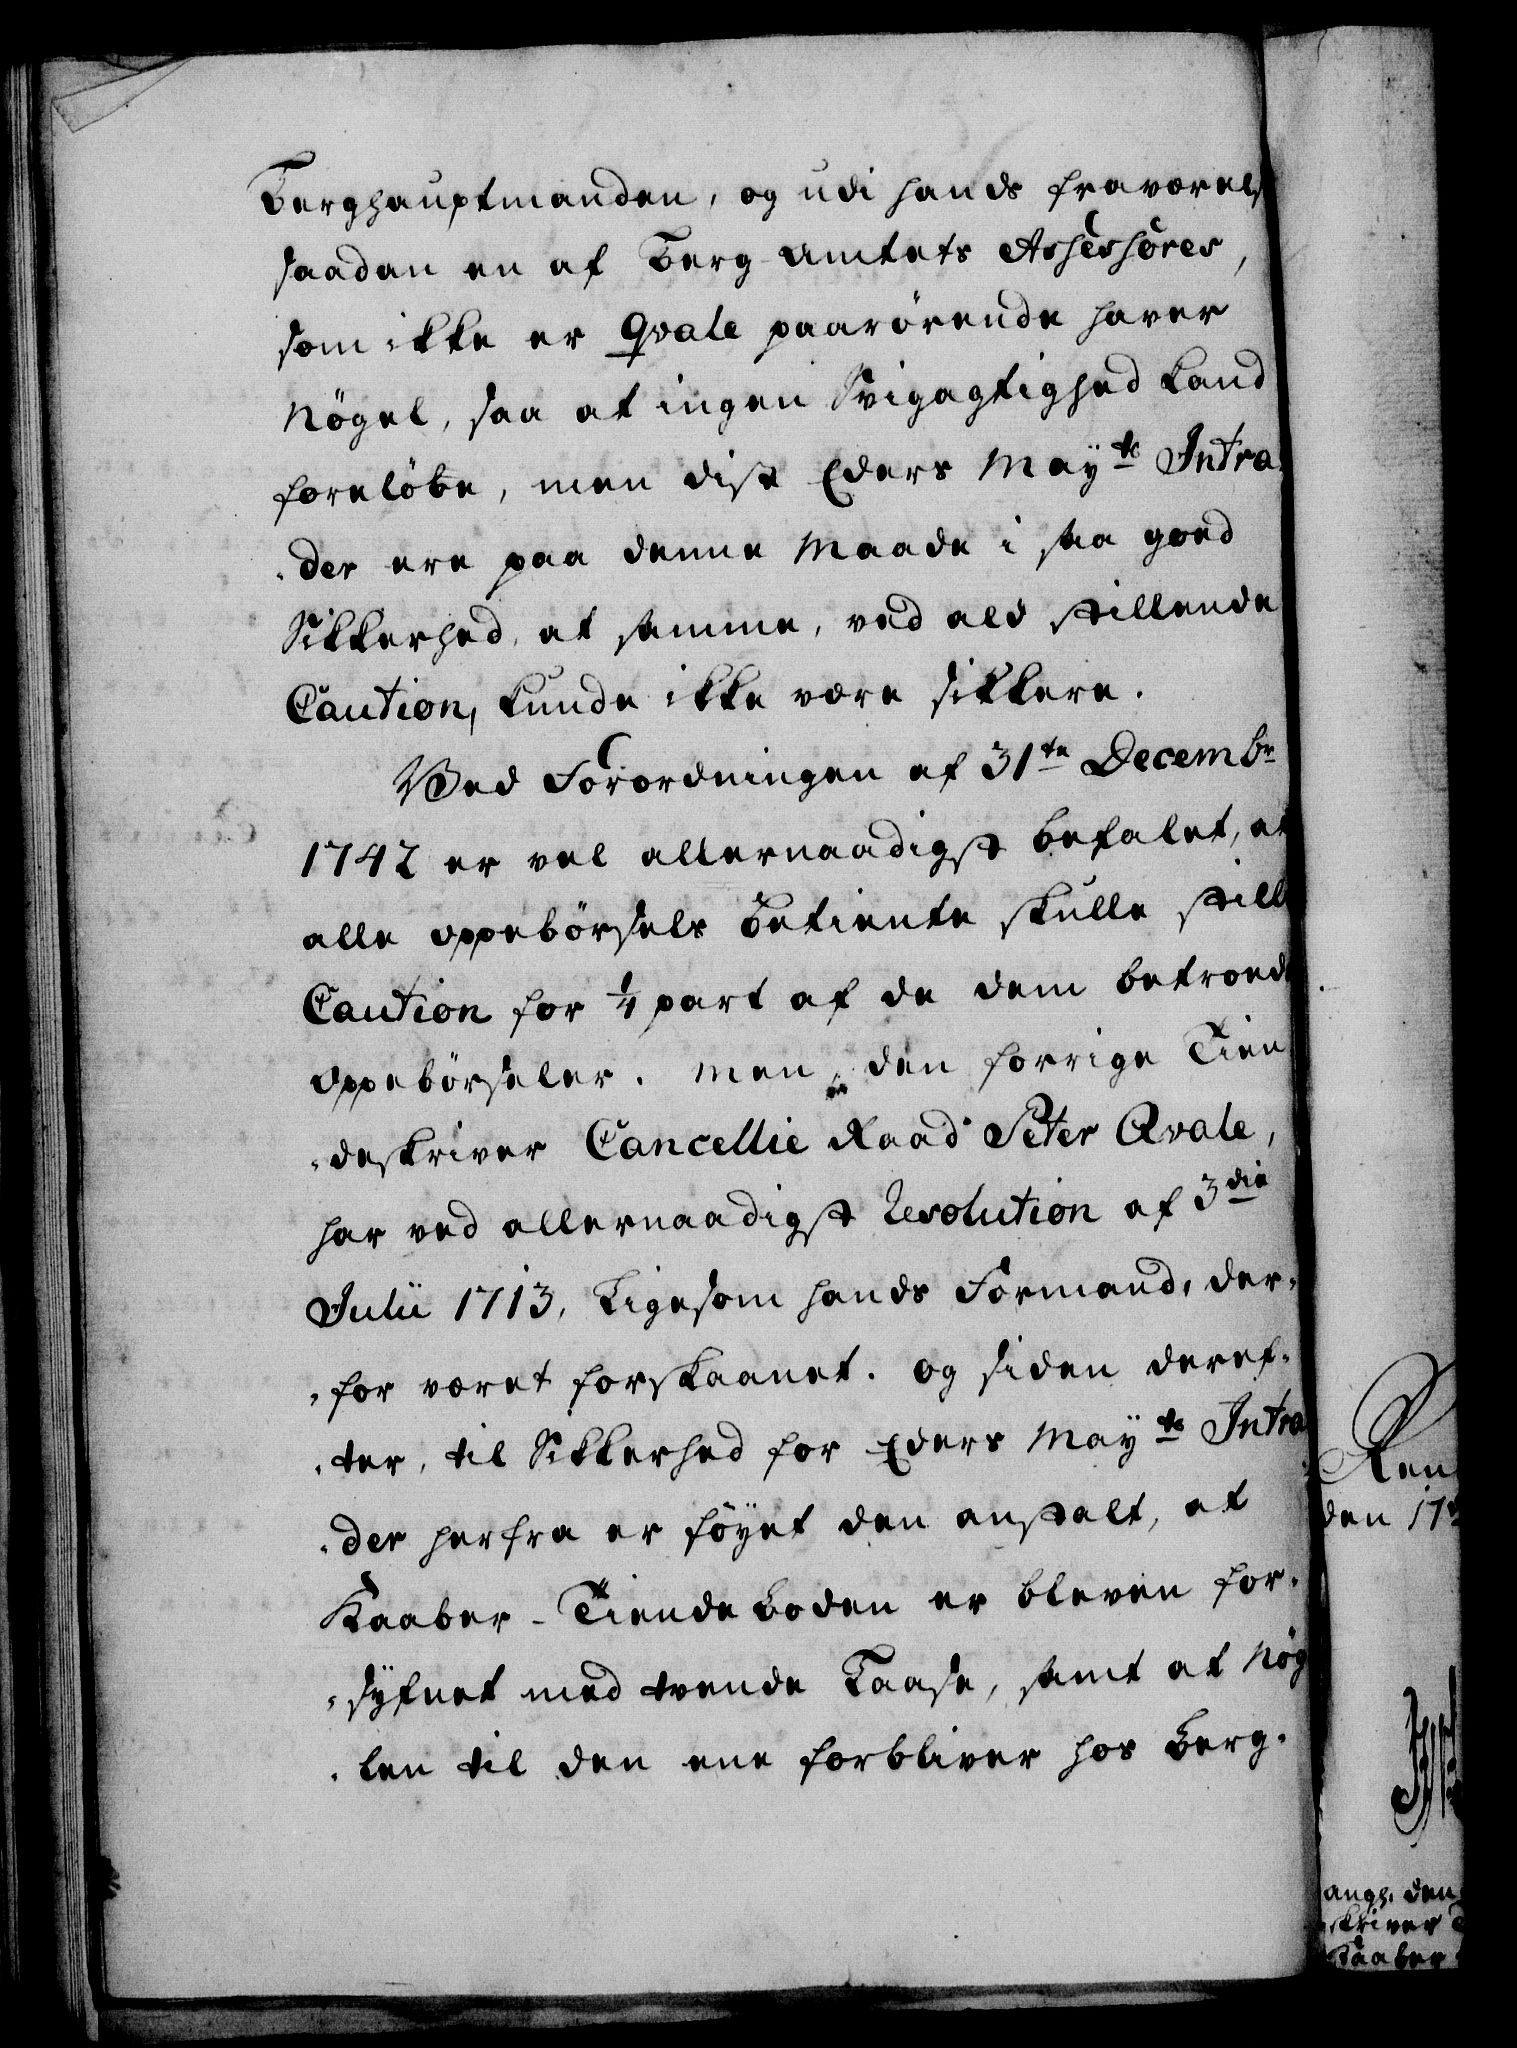 Berghauptmanden, og udi hands fraværels
saadan en af Berg Amtets Assessores,
som ikke er Qvale paarörende haver
Nögel, saa at ingen Svigagtighed kand
foreløbe, men disse Eders Mayts Intra,
,der ere paa denne Maade i saa goed
Sikkerhed, at samme, ved ald stillende
Caution, kunde ikke være sikkere.
Wed Forordningen af 31te Decembr
1742 er vel allernaadigst befalet, at
alle oppebörsels Betiente skulle still
Caution for 1/4 part af de dem betroed
oppebörseler. Men, den forrige Tien
,deskriver Cancellie Raad Peter Qvale,
har ved allernaadigst Resolution af 3die
Julii 1713, ligesom hands Formand, der,
,for været forskaanet. og siden deref,
,ter, til Sikkerhed for Eders Mayts Intra
,der herfra er föyet den anstalt, at
Kaaber-Tiende Boden er bleven for,
,syfnet med tvende Laase, samt at Nög
,len til den ene forbliver hos Berg,
Ren
den 17
angh. den
skriver
Kaaber